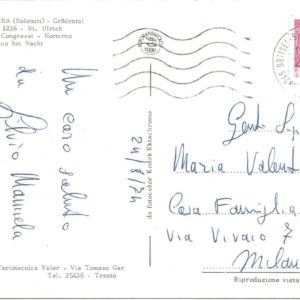 NA (Dolomiti) - Grödental
1236 - St. Ulrich
Congressi - Notturno
us bei Nacht
Un caro saluto
da
Silvio Manuela
24/8/74
da fotocolor Kodak Ektachrome
Maria Valen
Casa Famiglia
Via Vivaio 7
Milano
Cartotecnica Valer - Via Tomaso Gar
Tel. 35436 - Trento
Riproduzione vieta